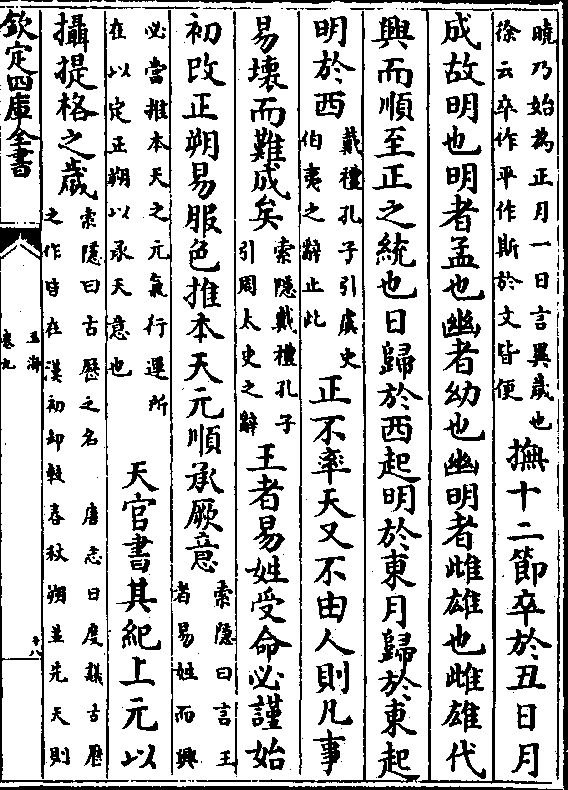 曉乃始為正月一日言異歲也
徐云卒作平作斯於文皆便
撫十二節卒於丑日月
成故明也明者孟也幽者幼也幽明者雌雄也雌雄代
興而順至正之統也日歸於西起明於東月歸於東起
明於西
戴禮孔子引虞史
伯夷之辭止此
正不率天又不由人則凡事
易壞而難成矣
索隱戴禮孔子
引周太史之辭
王者易姓受命必謹始
初改正朔易服色推本天元順承厥意
索隱曰言王
者易姓而興
必當推本天之元氣行運所
在以定正朔以承天意也
天官書其紀上元以
攝提格之歲
索隱曰古歷之名 唐志日度議古歷
之作皆在漢初却較春秋朔並先天則
欽定四庫全書
玉海
卷九
十八